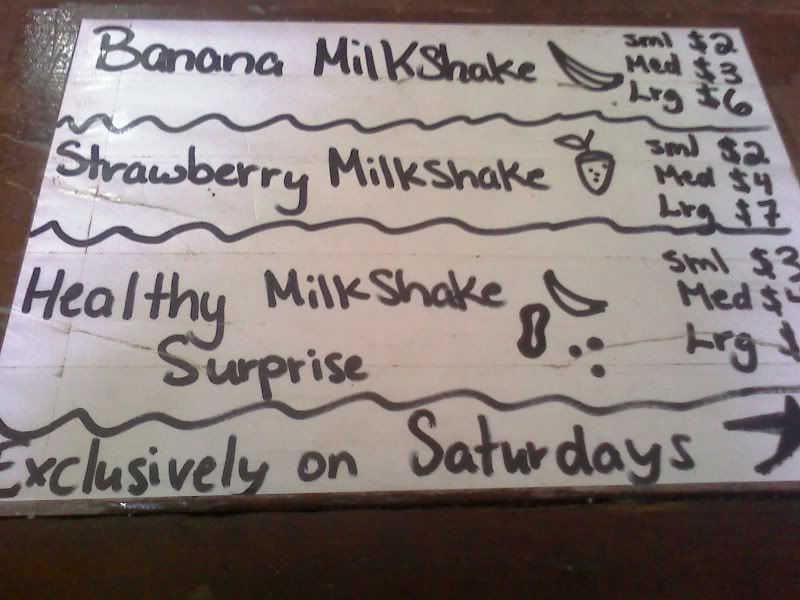 Banana MilkShake
sml $2
Med $3
Lrg $6
Strawberry Milkshake
sml $2
Med $4
Lrg $7
Healthy MilkShake
Surprise
sml $3
Med $
Lrg $
Exclusively on Saturdays